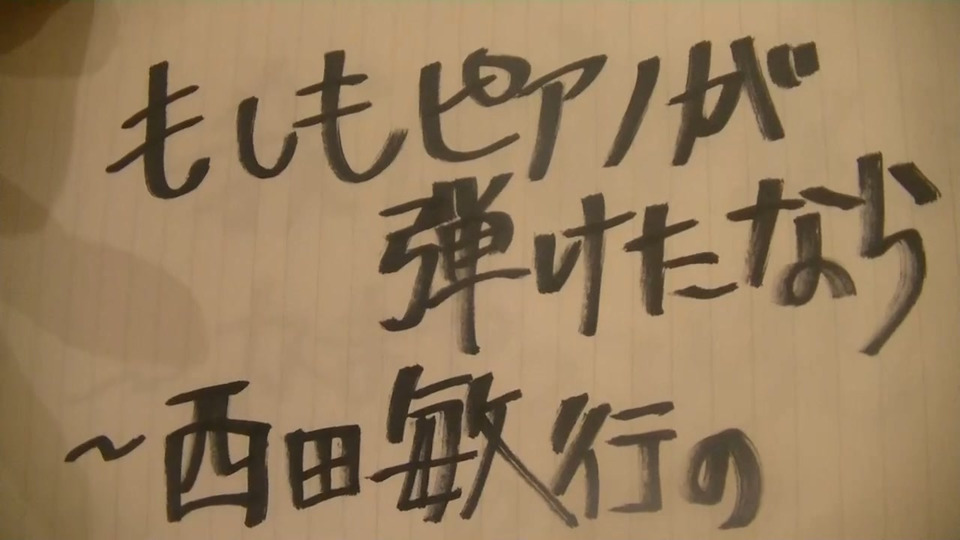 もしもピアノが
弾けたなら
~西田敏行の